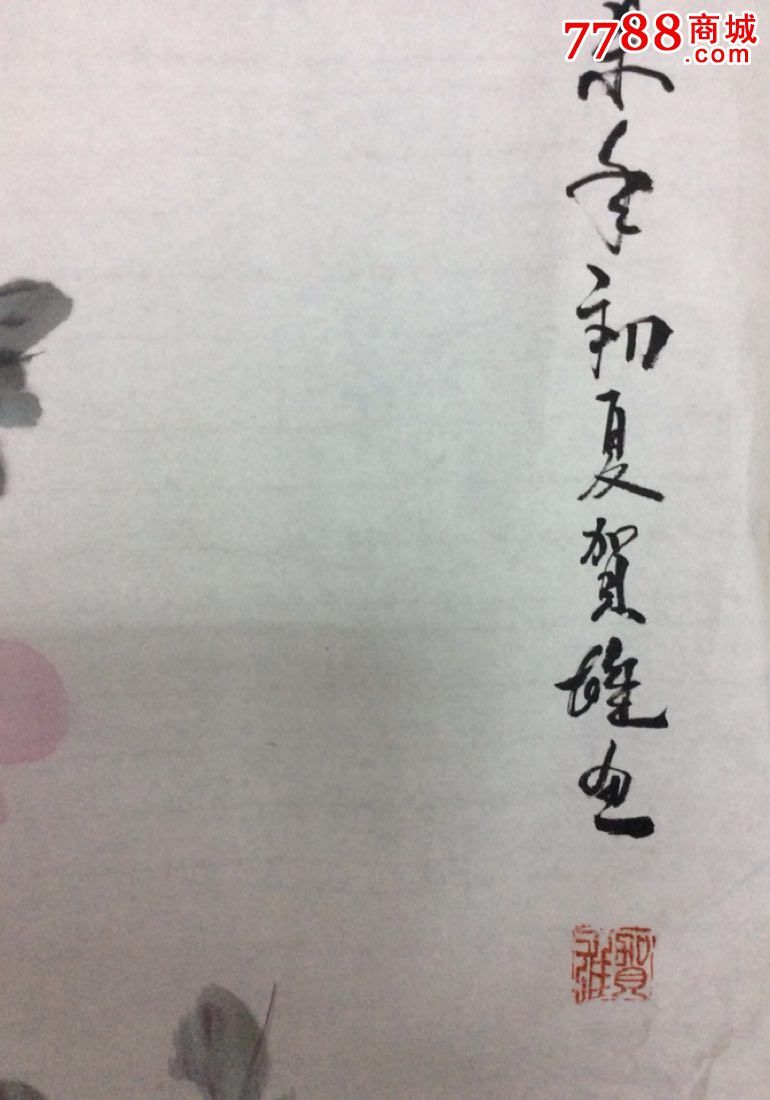 7788商城
.com
年初夏賀雄画
賀雄